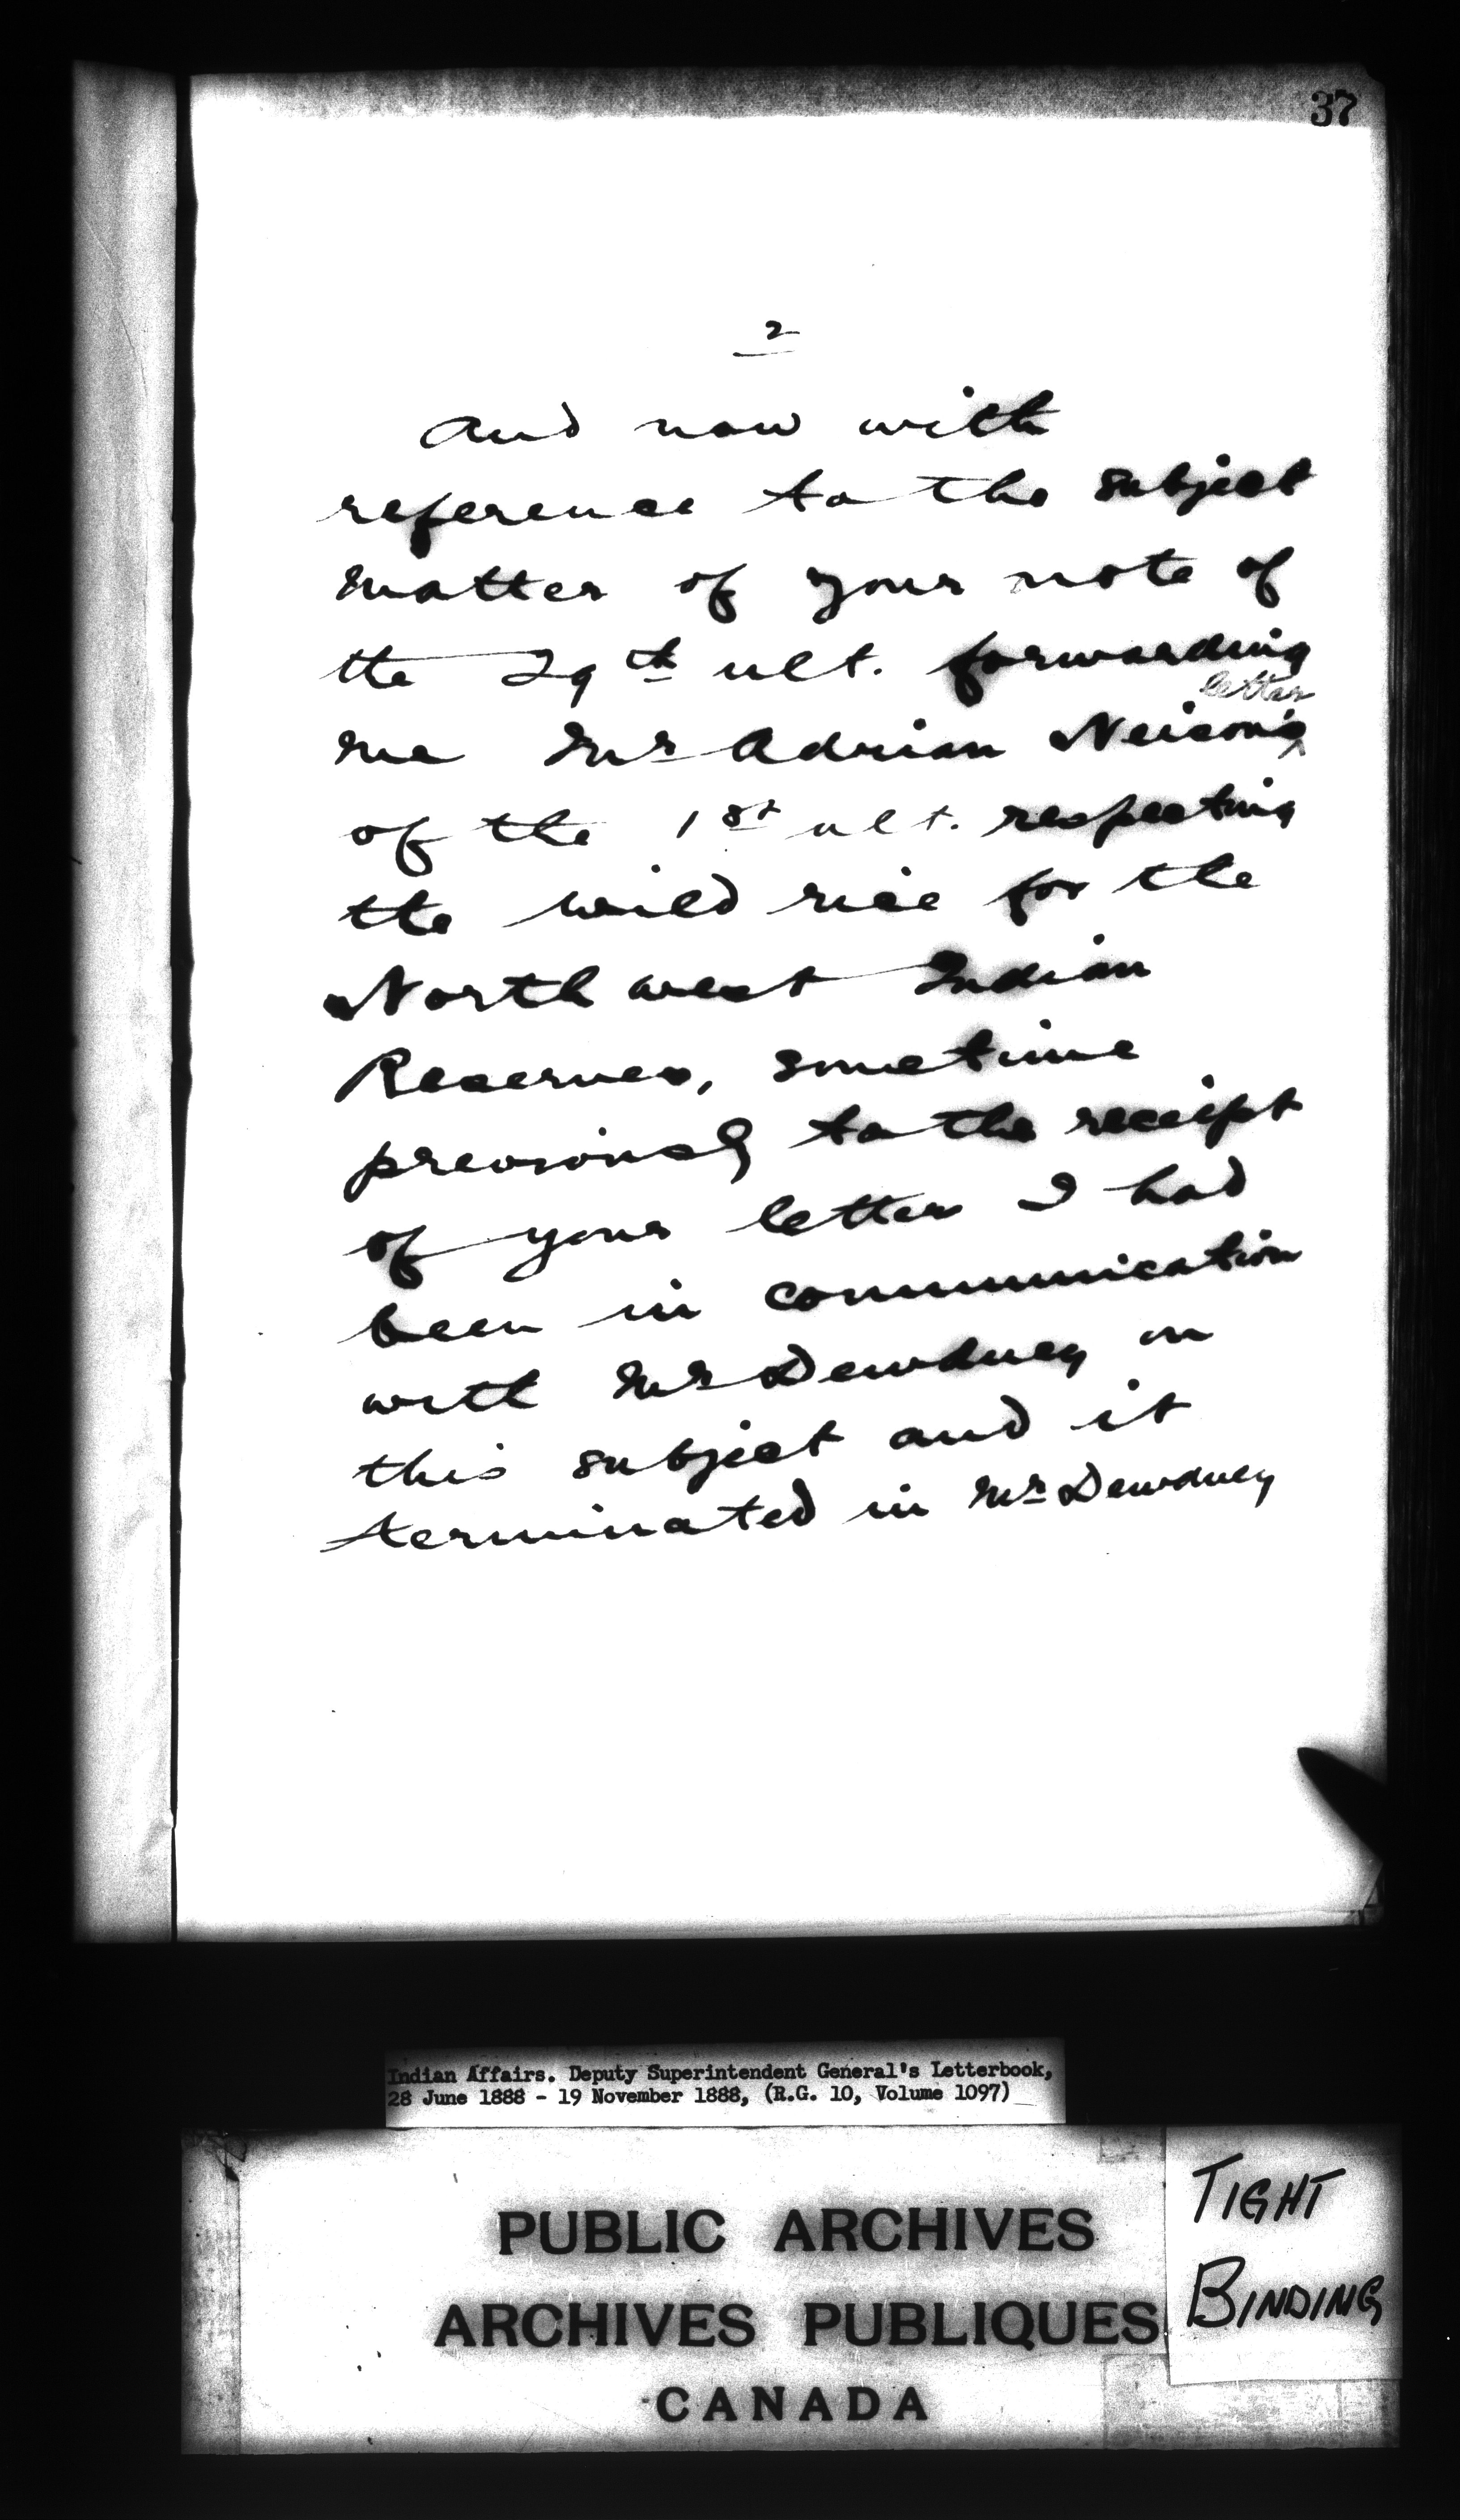 37
2
And now with
reference to the subject
matter of your note of
the 29th ult. forwarding
letter
me Mr Adrian Neison's
of the 1st ult. respecting
the wild rice for the
North west Indian
Reserves, sometime
previously to the receipt
of your letter I had
been in communication
with Mr Dewdney on
this subject and it
terminated in Mr Dewdney
Indian Affairs. Deputy Superintendent General's Letterbook,
28 June 1888 - 19 November 1888, (R.G. 10, Volume 1097)
PUBLIC ARCHIVES
ARCHIVES PUBLIQUES
CANADA
TIGHT
BINDING